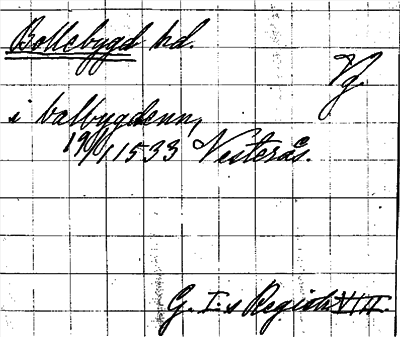 Bollebygd hd.
Vg.
i balbygdenn,
19/1 1533 Vesterås.
G. I:s Registr. VIII.